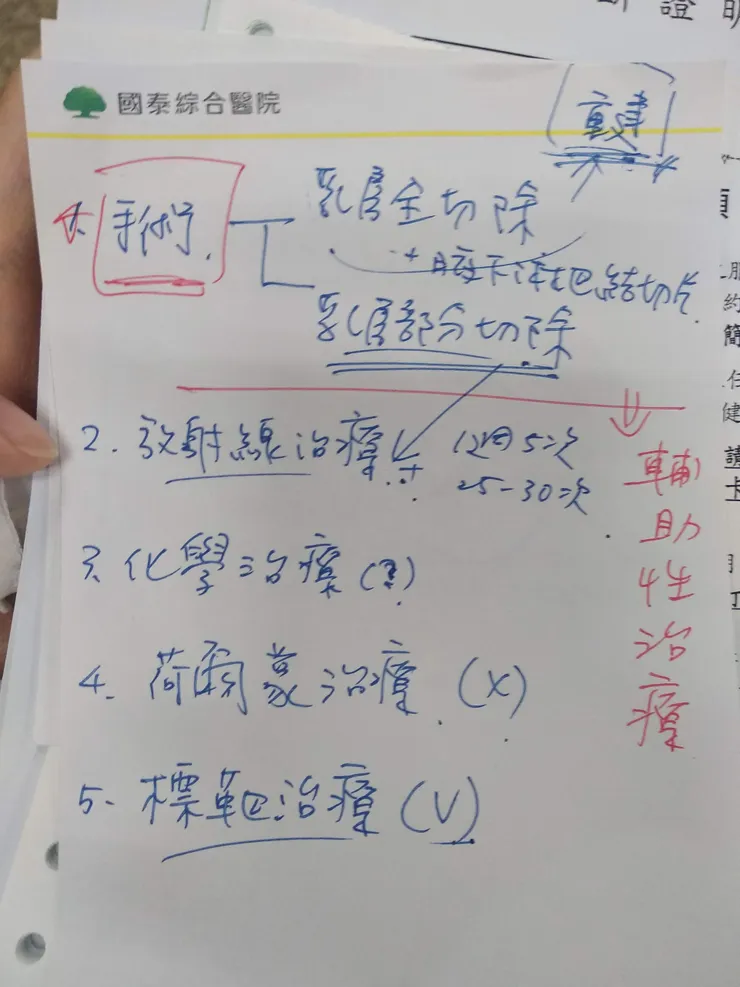 斷證明
國泰綜合醫院
重建
1. 手術
乳房全切除
+腋下淋巴結切片
乳房部分切除
2. 放射線治療 ± 1週5次
25-30次
3. 化學治療 (?)
4. 荷爾蒙治療 (X)
5. 標靶治療 (V)
輔助性治療